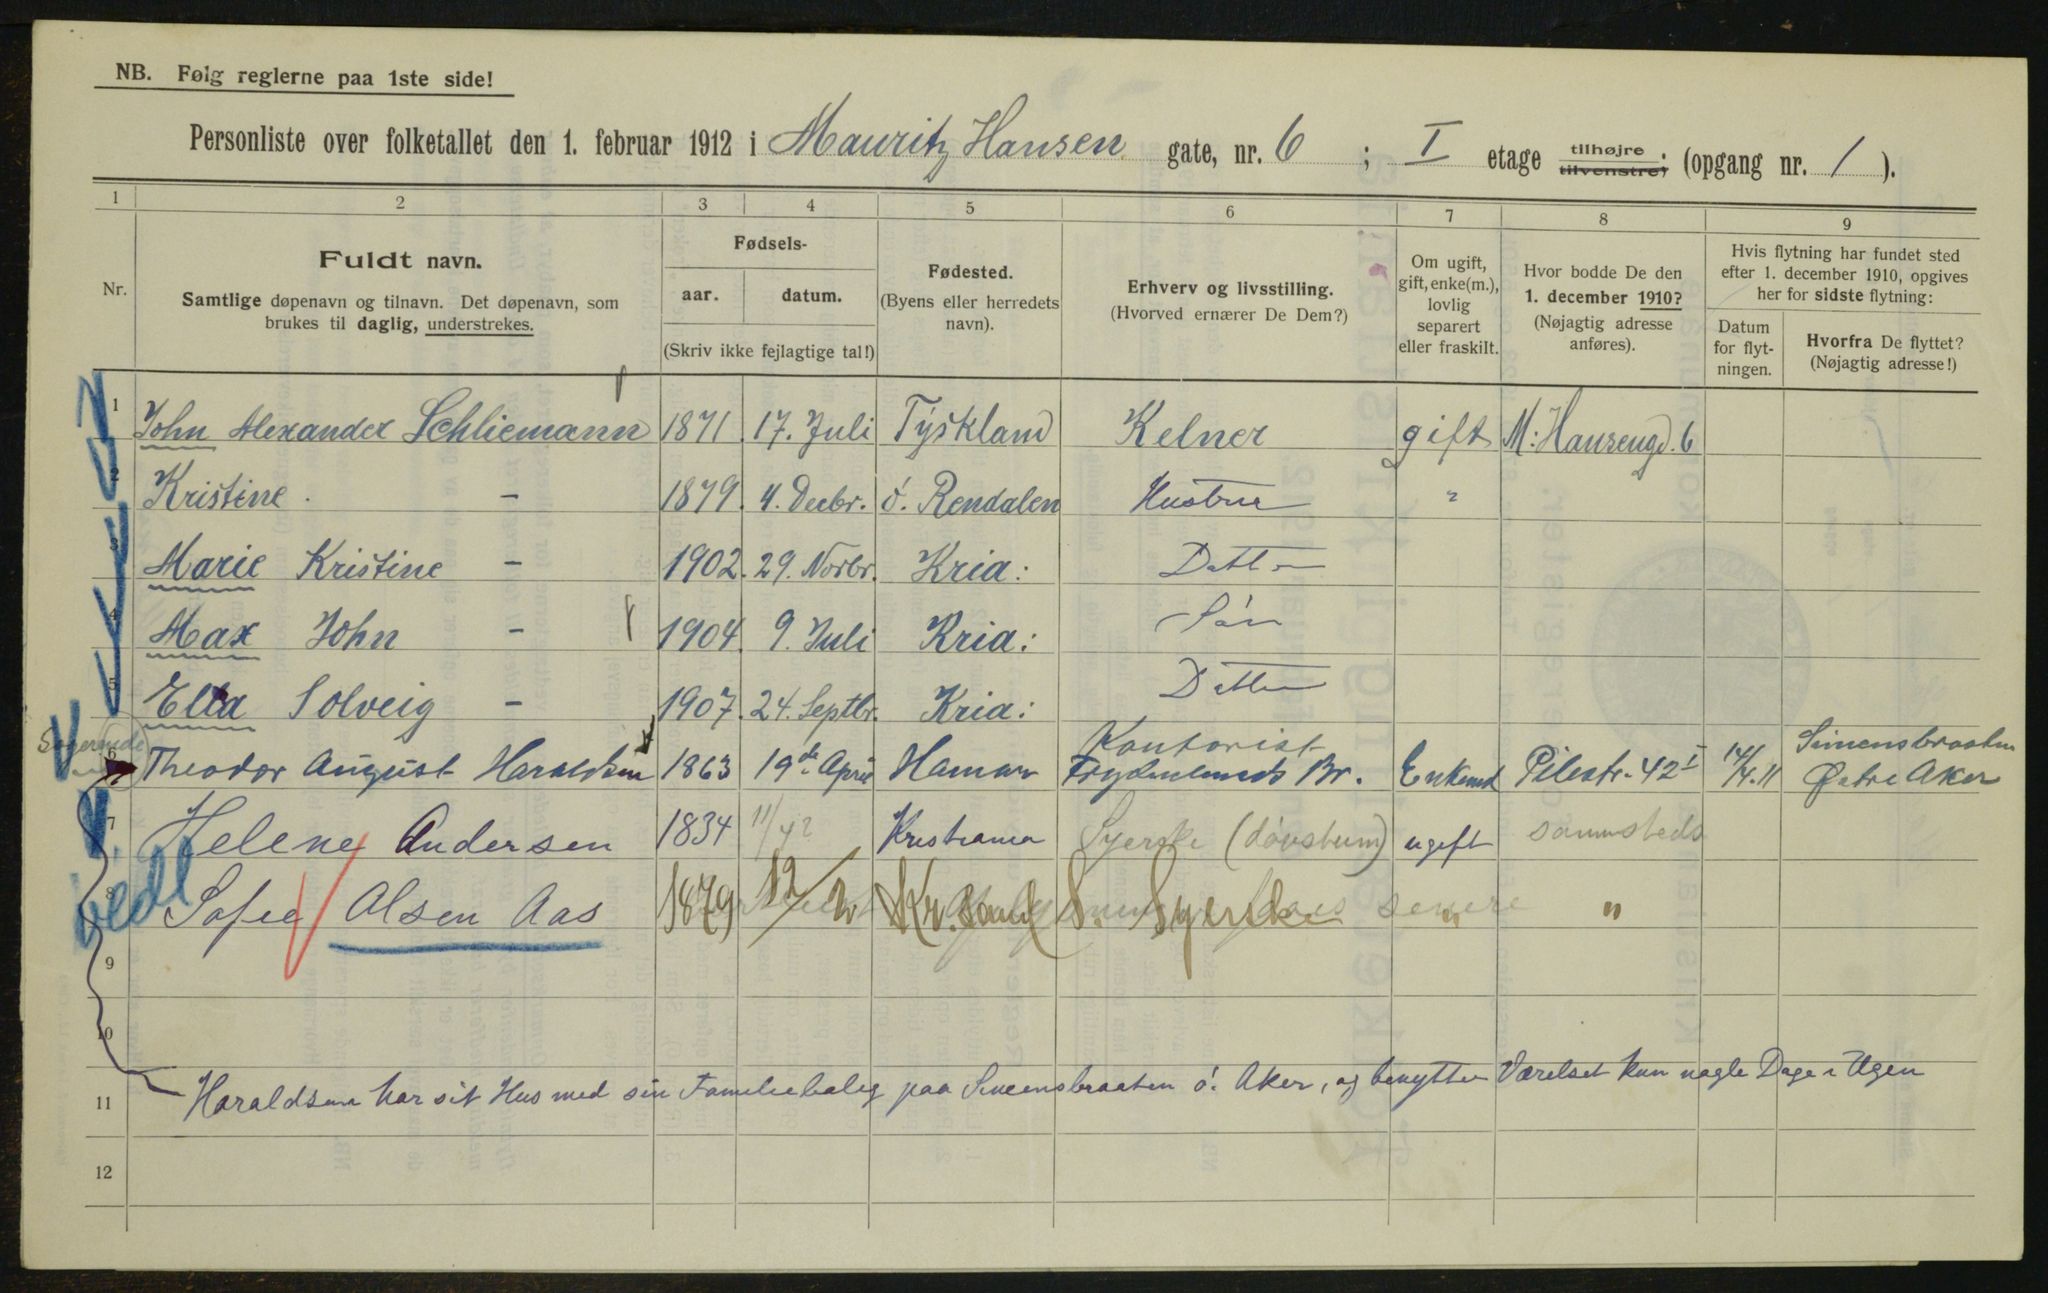 NB. Følg reglerne paa 1ste side!
Personliste over folketallet den 1. februar 1912 i Mauritz Hansen gate, nr. 6 ; I etage tilhøjre; tilvenstre; (opgang nr. 1 ).
1 2 3 4 5 6 7 8 9
Nr.
Fuldt navn.
Samtlige døpenavn og tilnavn. Det døpenavn, som
brukes til daglig, understrekes.
Fødsels-
aar. datum.
(Skriv ikke fejlagtige tal!)
Fødested.
(Byens eller herredets
navn).
Erhverv og livsstilling.
(Hvorved ernærer De Dem?)
Om ugift,
gift, enke(m.),
lovlig
separert
eller fraskilt.
Hvor bodde De den
1. december 1910?
(Nøjagtig adresse
anføres).
Hvis flytning har fundet sted
efter 1. december 1910, opgives
her for sidste flytning:
Datum
for flyt-
ningen.
Hvorfra De flyttet?
(Nøjagtig adresse!)
1 John Alexander Schliemann 1871. 17. Juli Tyskland Kelner gift M: Hansengd. 6
2 Kristine. - 1879. 4. Decbr. ö. Rendalen Hustru "
3 Marie Kristine - 1902. 29. Novbr. Kria: Datter
4 Max John - 1904. 9. Juli Kria: Sön
5 Ella Solveig - 1907. 24. Septbr. Kria: Datter
Kontorist Simensbraaten
6 Theodor August Haraldsen 1863 19de April Hamar Frydenlunds Br. Enkemd Pilestr. 42 I 14/4. 11 Østre Aker
7 Helene Andersen 1834 11/42 Kristiania Syerske (døvstum) ugift sammsteds
vedl
8 Sofie Olsen Aas 1879 12/2 Kr.sand S. Syerske " "
9
10
11 Haraldsen har sit Hus med sin Familiebolig paa Simensbraaten ö. Aker, og benytter Værelset kun nogle Dage i Ugen
12